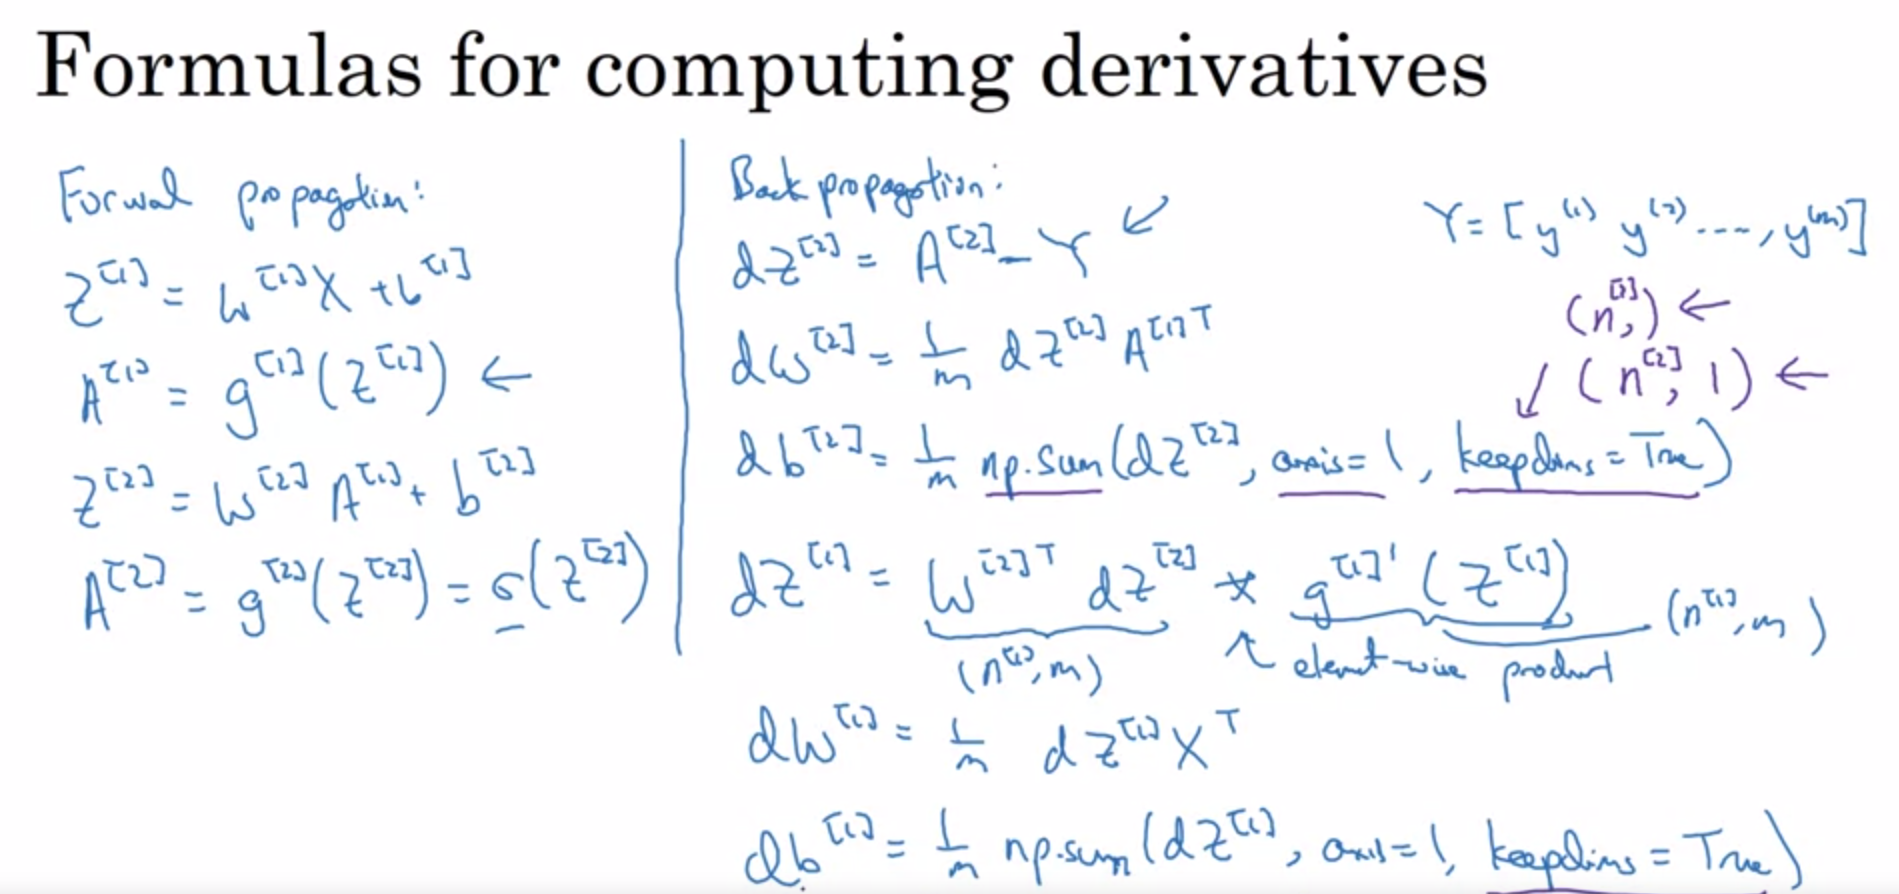 Formulas for computing derivatives
Forward propagation:
Z^[1] = W^[1]X + b^[1]
A^[1] = g^[1](Z^[1]) ←
Z^[2] = W^[2] A^[1] + b^[2]
A^[2] = g^[2](Z^[2]) = σ(Z^[2])
Back propagation:
dZ^[2] = A^[2] - Y ↙
dW^[2] = 1/m dZ^[2] A^[1]T
db^[2] = 1/m np.sum(dZ^[2], axis=1, keepdims=True)
dZ^[1] = W^[2]T dZ^[2] * g^[1]'(Z^[1])
(n^[1], m) ↖ element-wise product (n^[1], m)
dW^[1] = 1/m dZ^[1] X^T
db^[1] = 1/m np.sum(dZ^[1], axis=1, keepdims=True)
Y = [y^(1) y^(2) ...., y^(m)]
(n^[2],) ←
↙ (n^[2], 1) ←